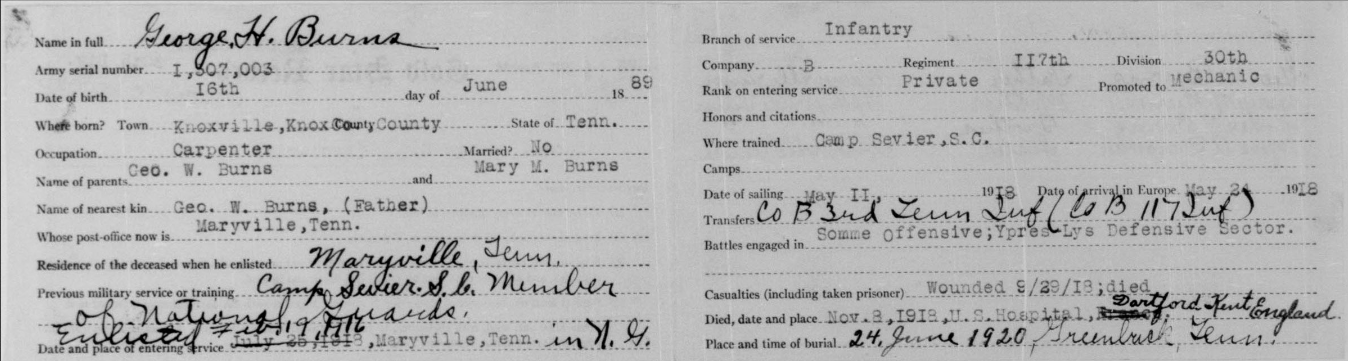 Name in full George, H. Burns
Army serial number I,307,003
Date of birth I6th day of June 18 89
Where born? Town Knoxville, Knox County County State of Tenn.
Occupation Carpenter Married? No
Name of parents Geo. W. Burns and Mary M. Burns
Name of nearest kin Geo. W. Burns, (Father)
Whose post-office now is Maryville,Tenn.
Residence of the deceased when he enlisted Maryville, Tenn.
Previous military service or training Camp Sevier. S.C. Member
of National Guards.
Enlisted Feb 19 1916
Date and place of entering service July 25,1918,Maryville,Tenn. in N.G.
Branch of service Infantry
Company B Regiment II7th Division 30th
Rank on entering service Private Promoted to Mechanic
Honors and citations
Where trained Camp Sevier,S.C.
Camps
Date of sailing May II, 1918 Date of arrival in Europe May 24 1918
Transfers Co B 3rd Tenn Inf (Co B 117 Inf)
Battles engaged in Somme Offensive;Ypres Lys Defensive Sector.
Casualties (including taken prisoner) Wounded 9/29/18;died
Died, date and place Nov.8,1918,U.S.Hospital, France. Dartford Kent England.
Place and time of burial 24, June 1920, Greenback, Tenn.